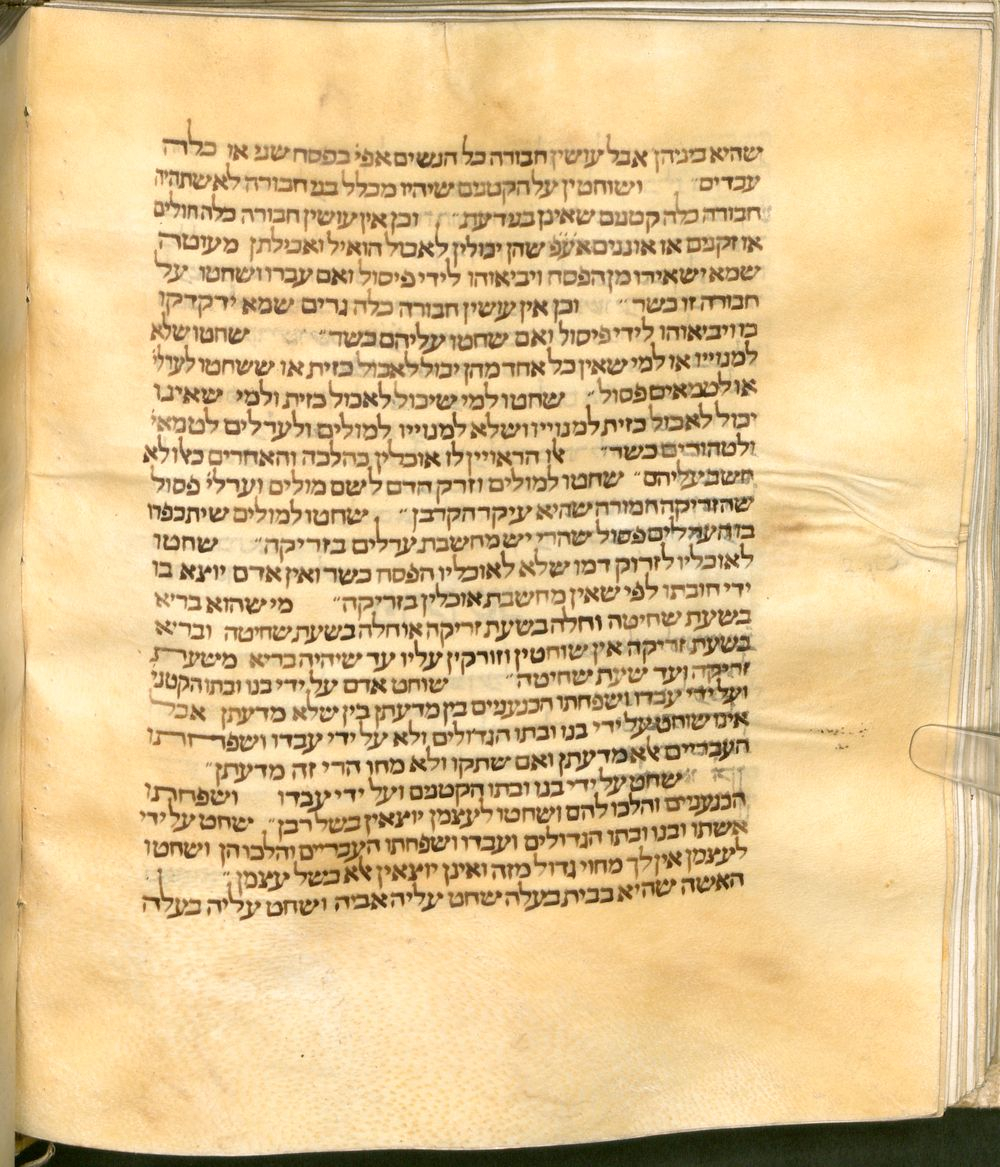 שהיא ביניהן אבל עושין חבורה כל הנשים אפי׳ בפסח שני או כלה
עבדים״ ושוחטין על הקטנים שיהיו מכלל בני חבורה לא שתהיה
חבורה כלה קטנים שאינן בני דעת״ וכן אין עושין חבורה כלה חולים
או זקנים או אוננים אע״פ שהן יכולין לאכול הואיל ואכילתן מעוטה
שמא ישאירו מן הפסח ויביאוהו לידי פיסול ואם עברו ושחטו על
חבורה זו כשר״ וכן אין עושין חבורה כלה גרים שמא ידקדקו
בו ויביאוהו לידי פיסול ואם שחטו עליהם כשר״ שחטו שלא
למנוייו או למי שאין כל אחד מהן יכול לאכול כזית או ששחטו לערלי׳
או לטמאים פסול״ שחטו למי שיכול לאכול כזית ולמי שאינו
יכול לאכול כזית למנוייו ושלא למנוייו למולים ולערלים לטמאי׳
ולטהורים כשר״ לו הראויין לו אוכלין כהלכה והאחרים כאלו לא
חשב עליהם״ שחטו למולים וזרק הדם לשם מולים וערלי׳ פסול
שהזריקה חמורה שהיא עיקר הקרבן״ שחטו למולים שיתכפרו
בו הערלים פסול שהרי יש מחשבת ערלים בזריקה״ שחטו
לאוכליו לזרוק דמו שלא לאוכליו הפסח כשר ואין אדם יוצא בו
ידי חובתו לפי שאין מחשבת אוכלין בזריקה״ מי שהוא בריא
בשעת שחיטה וחלה בשעת זריקה או חלה בשעת שחיטה ובריא
בשעת זריקה אין שוחטין וזורקין עליו עד שיהיה בריא משעת
זריקה ועד שעת שחיטה״ שוחט אדם על ידי בנו ובתו הקטני׳
ועל ידי עבדו ושפחתו הכנענים בין מדעתן בין שלא מדעתן אבל
אינו שוחט על ידי בנו ובתו הגדולים ולא על ידי עבדו ושפחתו
העבריים אלא מדעתן ואם שתקו ולא מחו הרי זה מדעתן״
שחט על ידי בנו ובתו הקטנים ועל ידי עבדו ושפחתו
הכנענים והלכו להם ושחטו לעצמן יוצאין בשל רבן״ שחט על ידי
אשתו ובנו ובתו הגדולים ועבדו ושפחתו העבריים והלכו הן ושחטו
לעצמן אין לך מחוי גדול מזה ואינן יוצאין אלא בשל עצמן״
האשה שהיא בבית בעלה שחט עליה אביה ושחט עליה בעלה